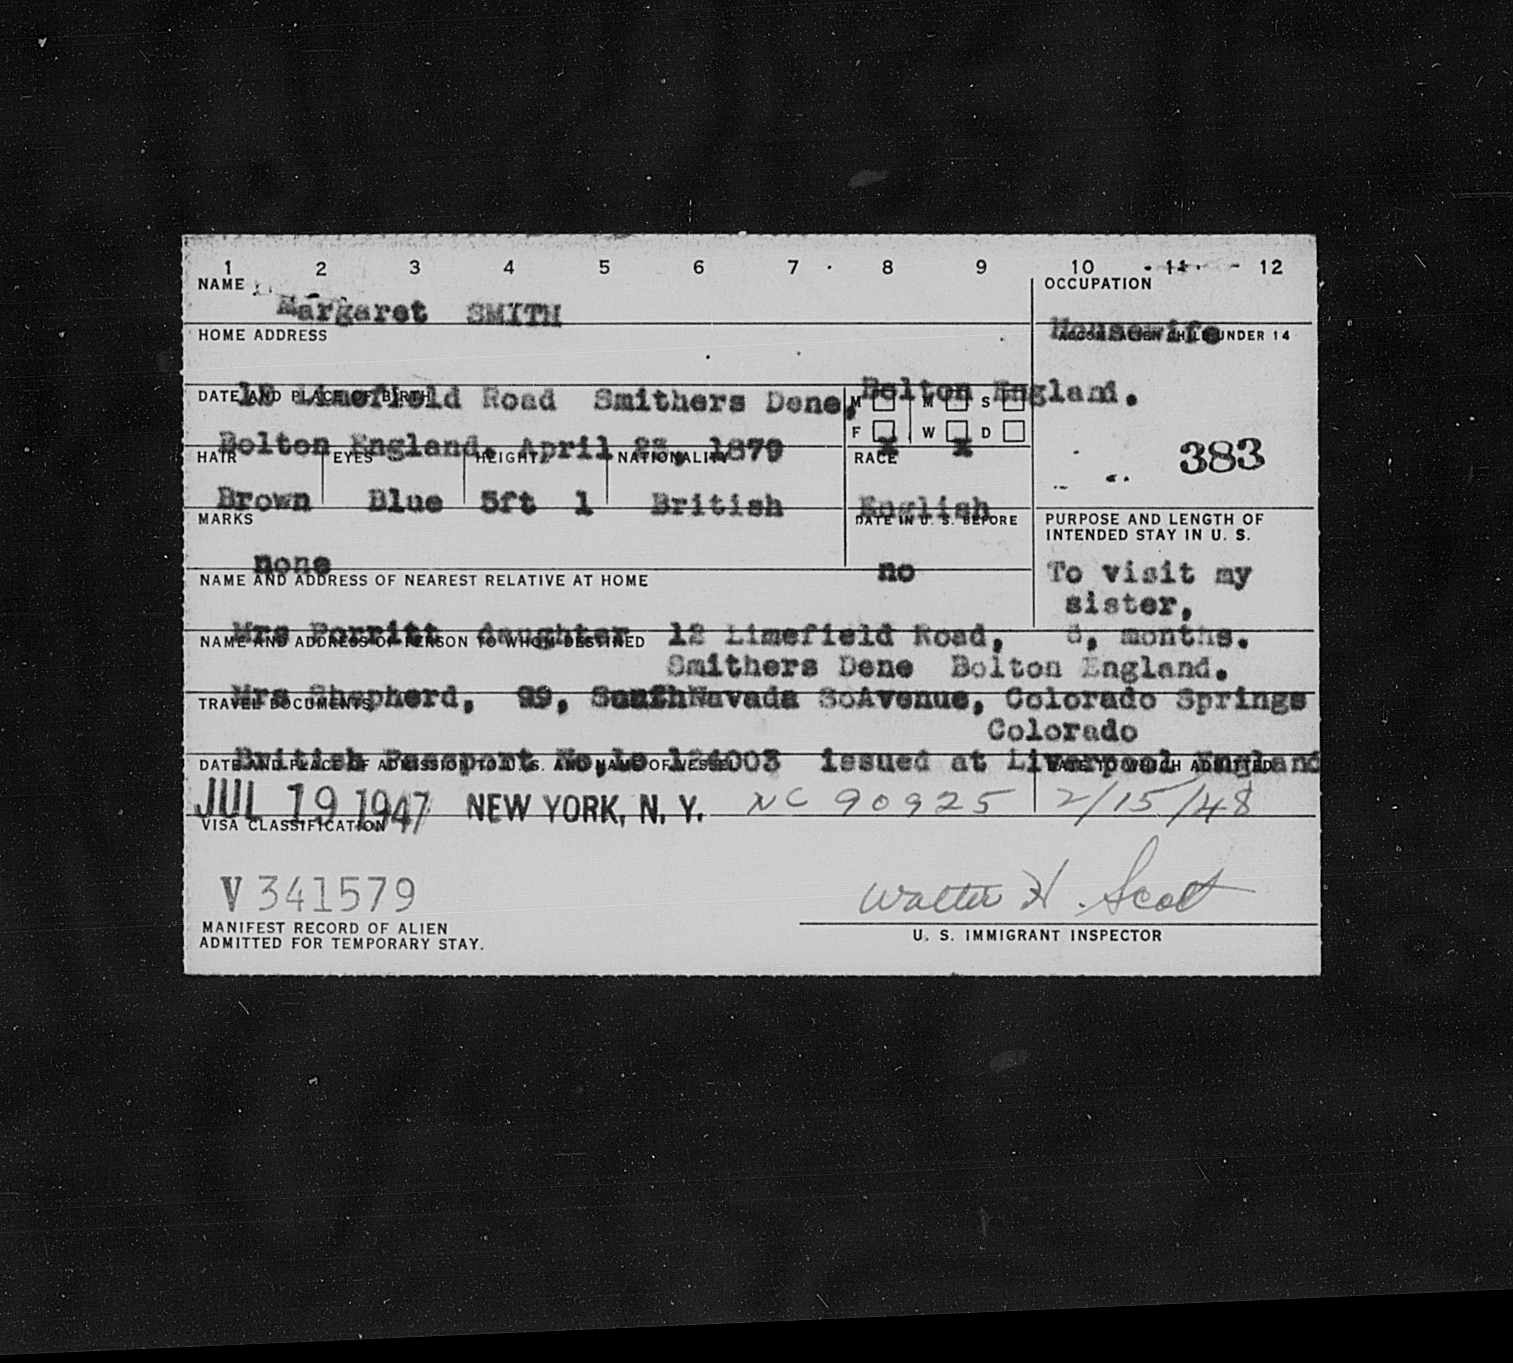 1 2 3 4 5 6 7 8 9 10 11 12
NAME OCCUPATION
Margaret SMITH
Housewife
HOME ADDRESS ACCOM. ALIEN CHILD UNDER 14
12 Limefield Road Smithers Dene, Bolton England.
DATE AND PLACE OF BIRTH M M S
F W D
Bolton England, April 23, 1879 x x
383
HAIR EYES HEIGHT NATIONALITY RACE
Brown Blue 5ft 1 British English
MARKS DATE IN U. S. BEFORE PURPOSE AND LENGTH OF
INTENDED STAY IN U. S.
none no To visit my
sister,
NAME AND ADDRESS OF NEAREST RELATIVE AT HOME
Mrs Porritt daughter 12 Limefield Road, months.
NAME AND ADDRESS OF PERSON TO WHOM DESTINED
Smithers Dene Bolton England.
Mrs Shepherd, 99, Nevada Avenue, Colorado Springs
TRAVEL DOCUMENTS
Colorado
British Passport issued at Liverpool England
DATE AND PLACE OF ADMISSION TO U. S. AND NAME OF VESSEL DATE TO WHICH ADMITTED
JUL 19 1947 NEW YORK, N. Y. NC 90925 2/15/48
VISA CLASSIFICATION
V 341579 Walter H. Scott
MANIFEST RECORD OF ALIEN
ADMITTED FOR TEMPORARY STAY.
U. S. IMMIGRANT INSPECTOR